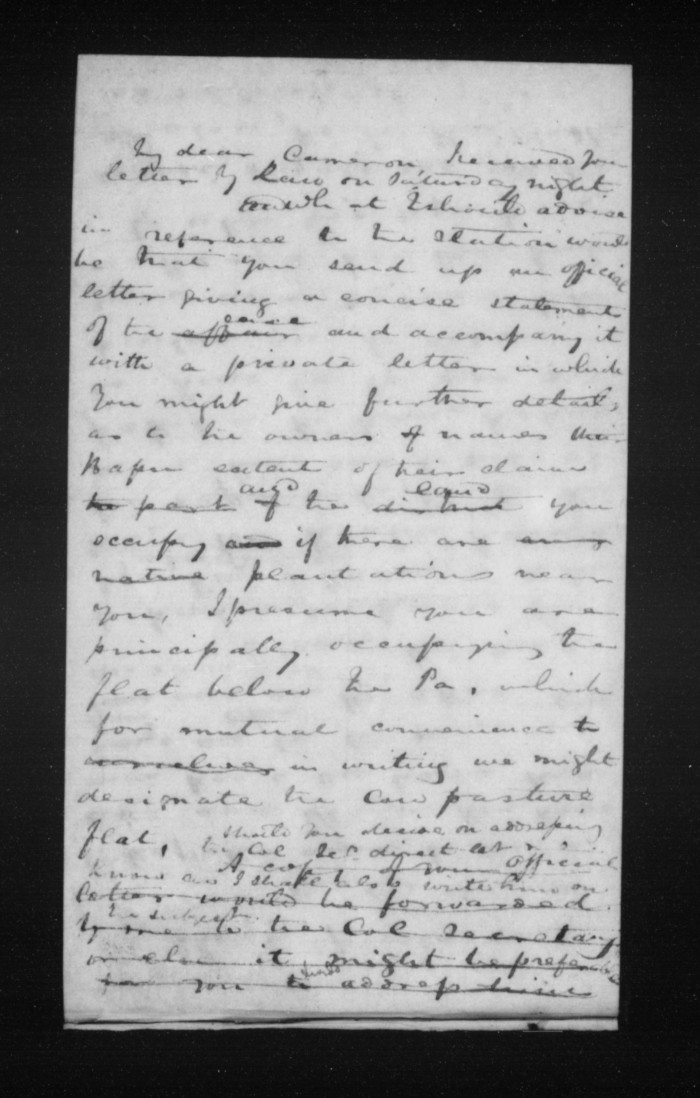 My dear Cameron Received your
letter by Law on Saturday night
What I should advise
in reference to the station would
be that you send up an official
letter giving a concise statement
of the affair case and accompany it
with a private letter in which
you might give further details
as to the owners & names
Hapu extent of their claim
to part of the district land you
occupy and if there are any
native plantations near
you, I presume you are
principally occupying the
flat below the Pa, which
for mutual convenience to
ourselves in writing we might
designate the Cow pasture
flat, should you decide on addressing
the Col Sec direct let me
A copy of your official
know as I shall also write him on
letter would be forwarded
the subject
by me to the Col Secretary
or else it might be preferable
for you to address him